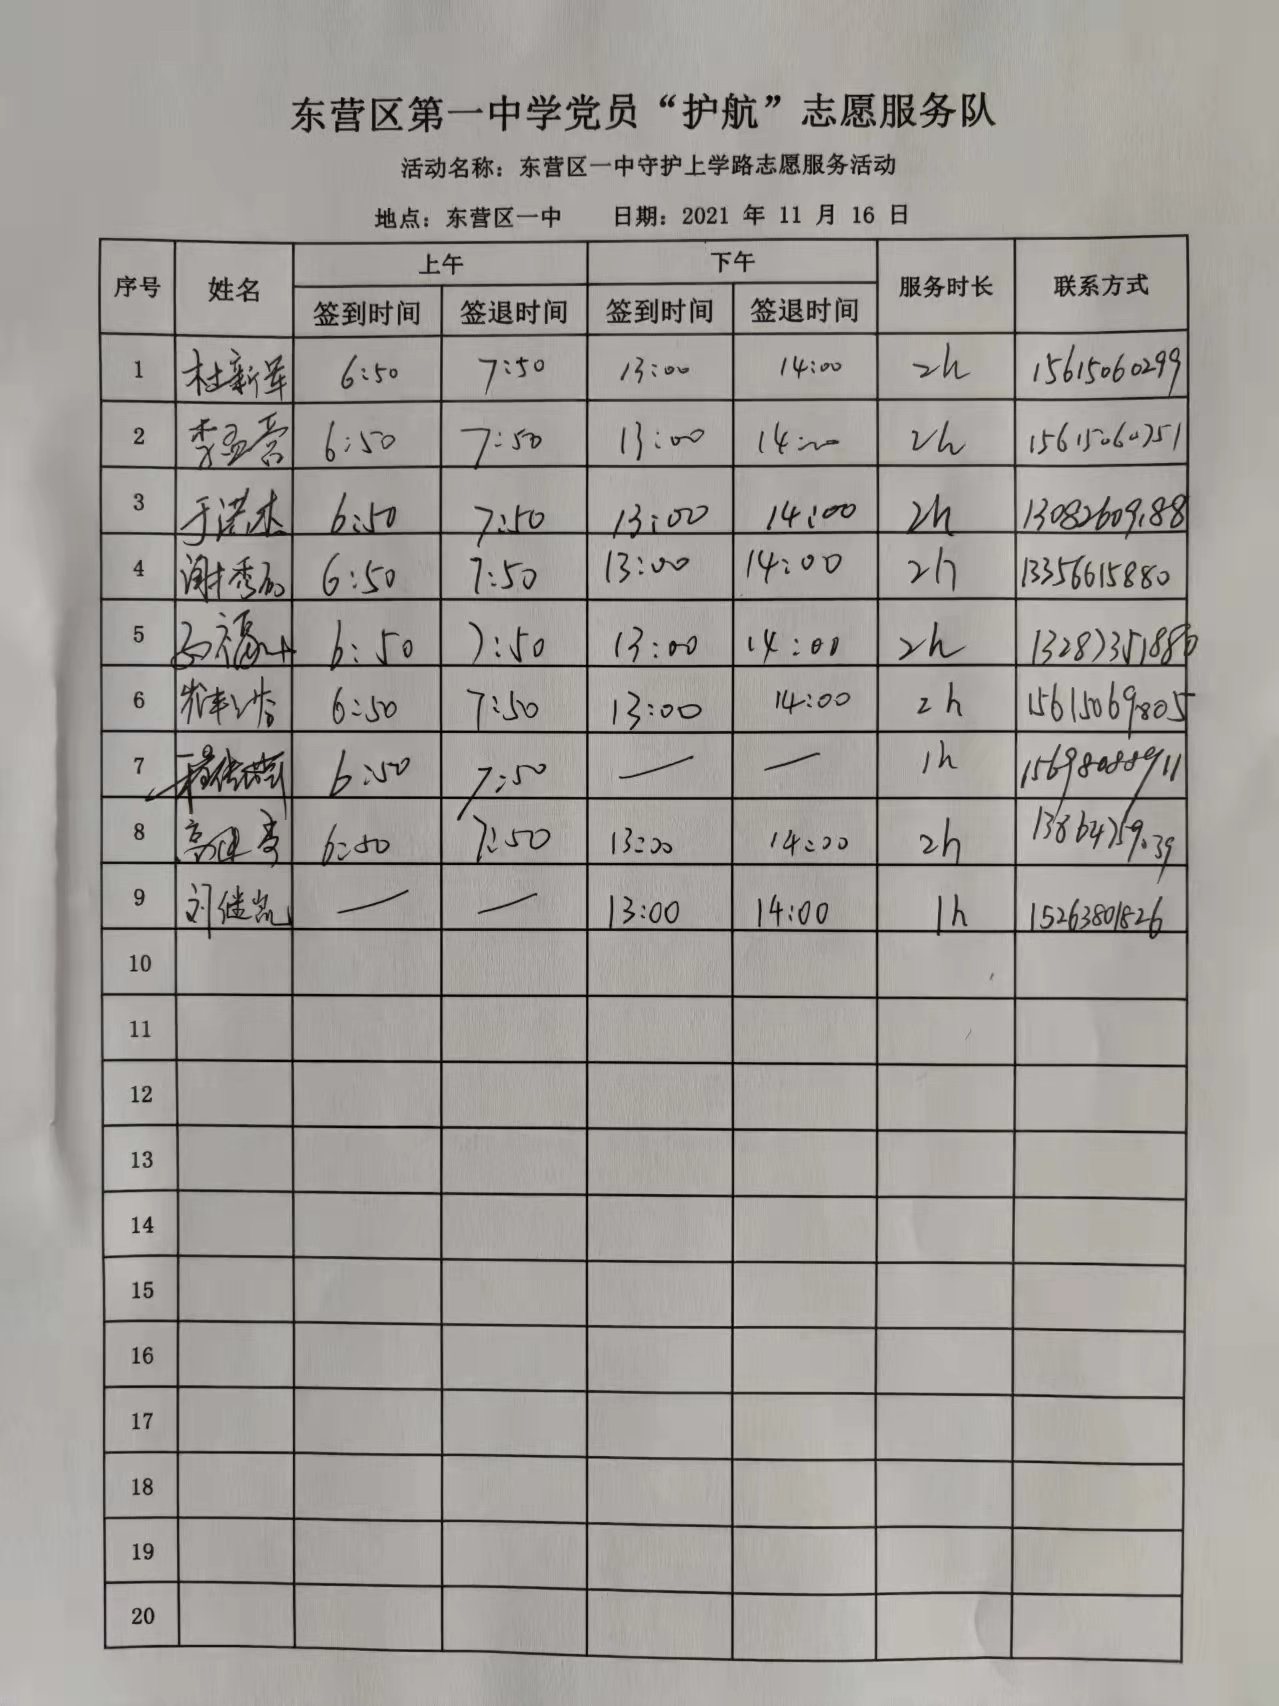 东营区第一中学党员“护航”志愿服务队
活动名称：东营区一中守护上学路志愿服务活动
地点：东营区一中 日期：2021 年 11 月 16 日
序号 姓名 上午 下午 服务时长 联系方式
签到时间 签退时间 签到时间 签退时间
1 杜新军 6:50 7:50 13:00 14:00 2h 15615060299
2 6:50 7:50 13:00 14:00 2h 15615060751
3 于洪杰 6:50 7:50 13:00 14:00 2h 13082609188
4 6:50 7:50 13:00 14:00 2h 13356615880
5 6:50 7:50 13:00 14:00 2h
6 6:50 7:50 13:00 14:00 2h 15615069805
7 6:50 7:50 — — 1h 15698088911
8 6:50 7:50 13:00 14:00 2h
9 刘继凯 — — 13:00 14:00 1h 15263801826
10
11
12
13
14
15
16
17
18
19
20